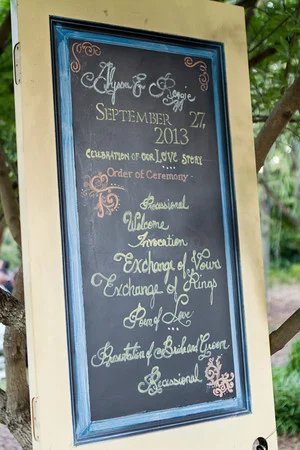 Alyson & Reggie
September 27,
2013
Celebration of our Love story
Order of Ceremony -
Processional
Welcome
Invocation
Exchange of Vows
Exchange of Rings
Poem of Love
Presentation of Bride and Groom
Recessional